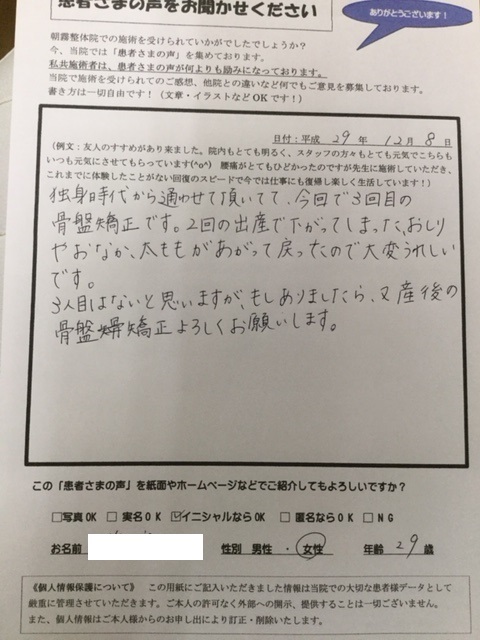 患者さまの声をお聞かせください
ありがとうございます！
朝霧整体院での施術を受けられていかがでしたでしょうか？
今、当院では「患者さまの声」を集めております。
私共施術者は、患者さまの声が何よりも励みになっております。
当院で施術を受けられてのご感想、他院との違いなど何でもご意見を募集しております。
書き方は一切自由です！（文章・イラストなどＯＫです！）
日付：平成 29 年 12 月 8 日
（例文：友人のすすめがあり来ました。院内もとても明るく、スタッフの方々もとても元気でこちらも
いつも元気にさせてもらっています(^o^) 腰痛がとてもひどかったのですが先生に施術していただき、
これまでに体験したことがない回復のスピードで今では仕事にも復帰し楽しく生活しています！）
独身時代から通わせて頂いてて、今回で3回目の
骨盤矯正です。2回の出産で下がってしまった、おしり
やおなか、太ももがあがって戻ったので大変うれしい
です。
3人目はないと思いますが、もしありましたら、又産後の
骨盤矯正よろしくお願いします。
この「患者さまの声」を紙面やホームページなどでご紹介してもよろしいですか？
□写真OK □ 実名ＯＫ ☑イニシャルならOK □ 匿名ならＯＫ □ ＮＧ
お名前 性別 男性 ・ 女性 年齢 29 歳
《個人情報保護について》 この用紙にご記入いただきました情報は当院での大切な患者様データとして
厳重に管理させていただきます。ご本人の許可なく外部への開示、提供することは一切ございません。
また、個人情報はご本人様からのお申し出により訂正・削除いたします。